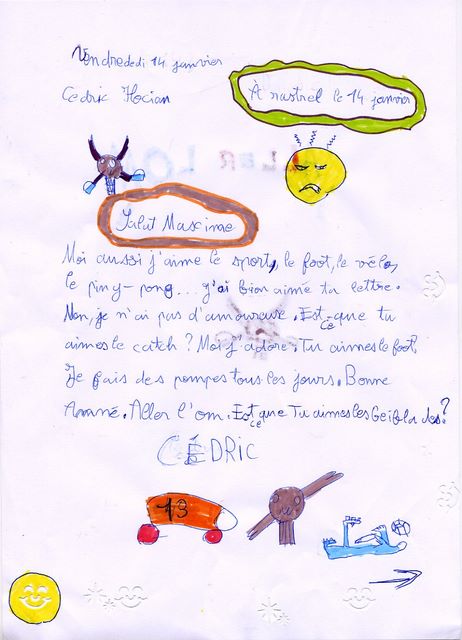 Vendrededi 14 janvier
Cedric Hocian
À nastriel le 14 janvier
Salut Maxime
Moi aussi j'aime le sport, le foot, le vélo,
le ping-pong... j'ai bien aimé ta lettre.
Non, je n'ai pas d'amoureuse. Est-ce que tu
aimes le catch ? Moi j'adore. Tu aimes le foot?
Je fais des pompes tous les jours. Bonne
Anané. Aller l'om. Est ce que Tu aimes les
CÉDRIC
13